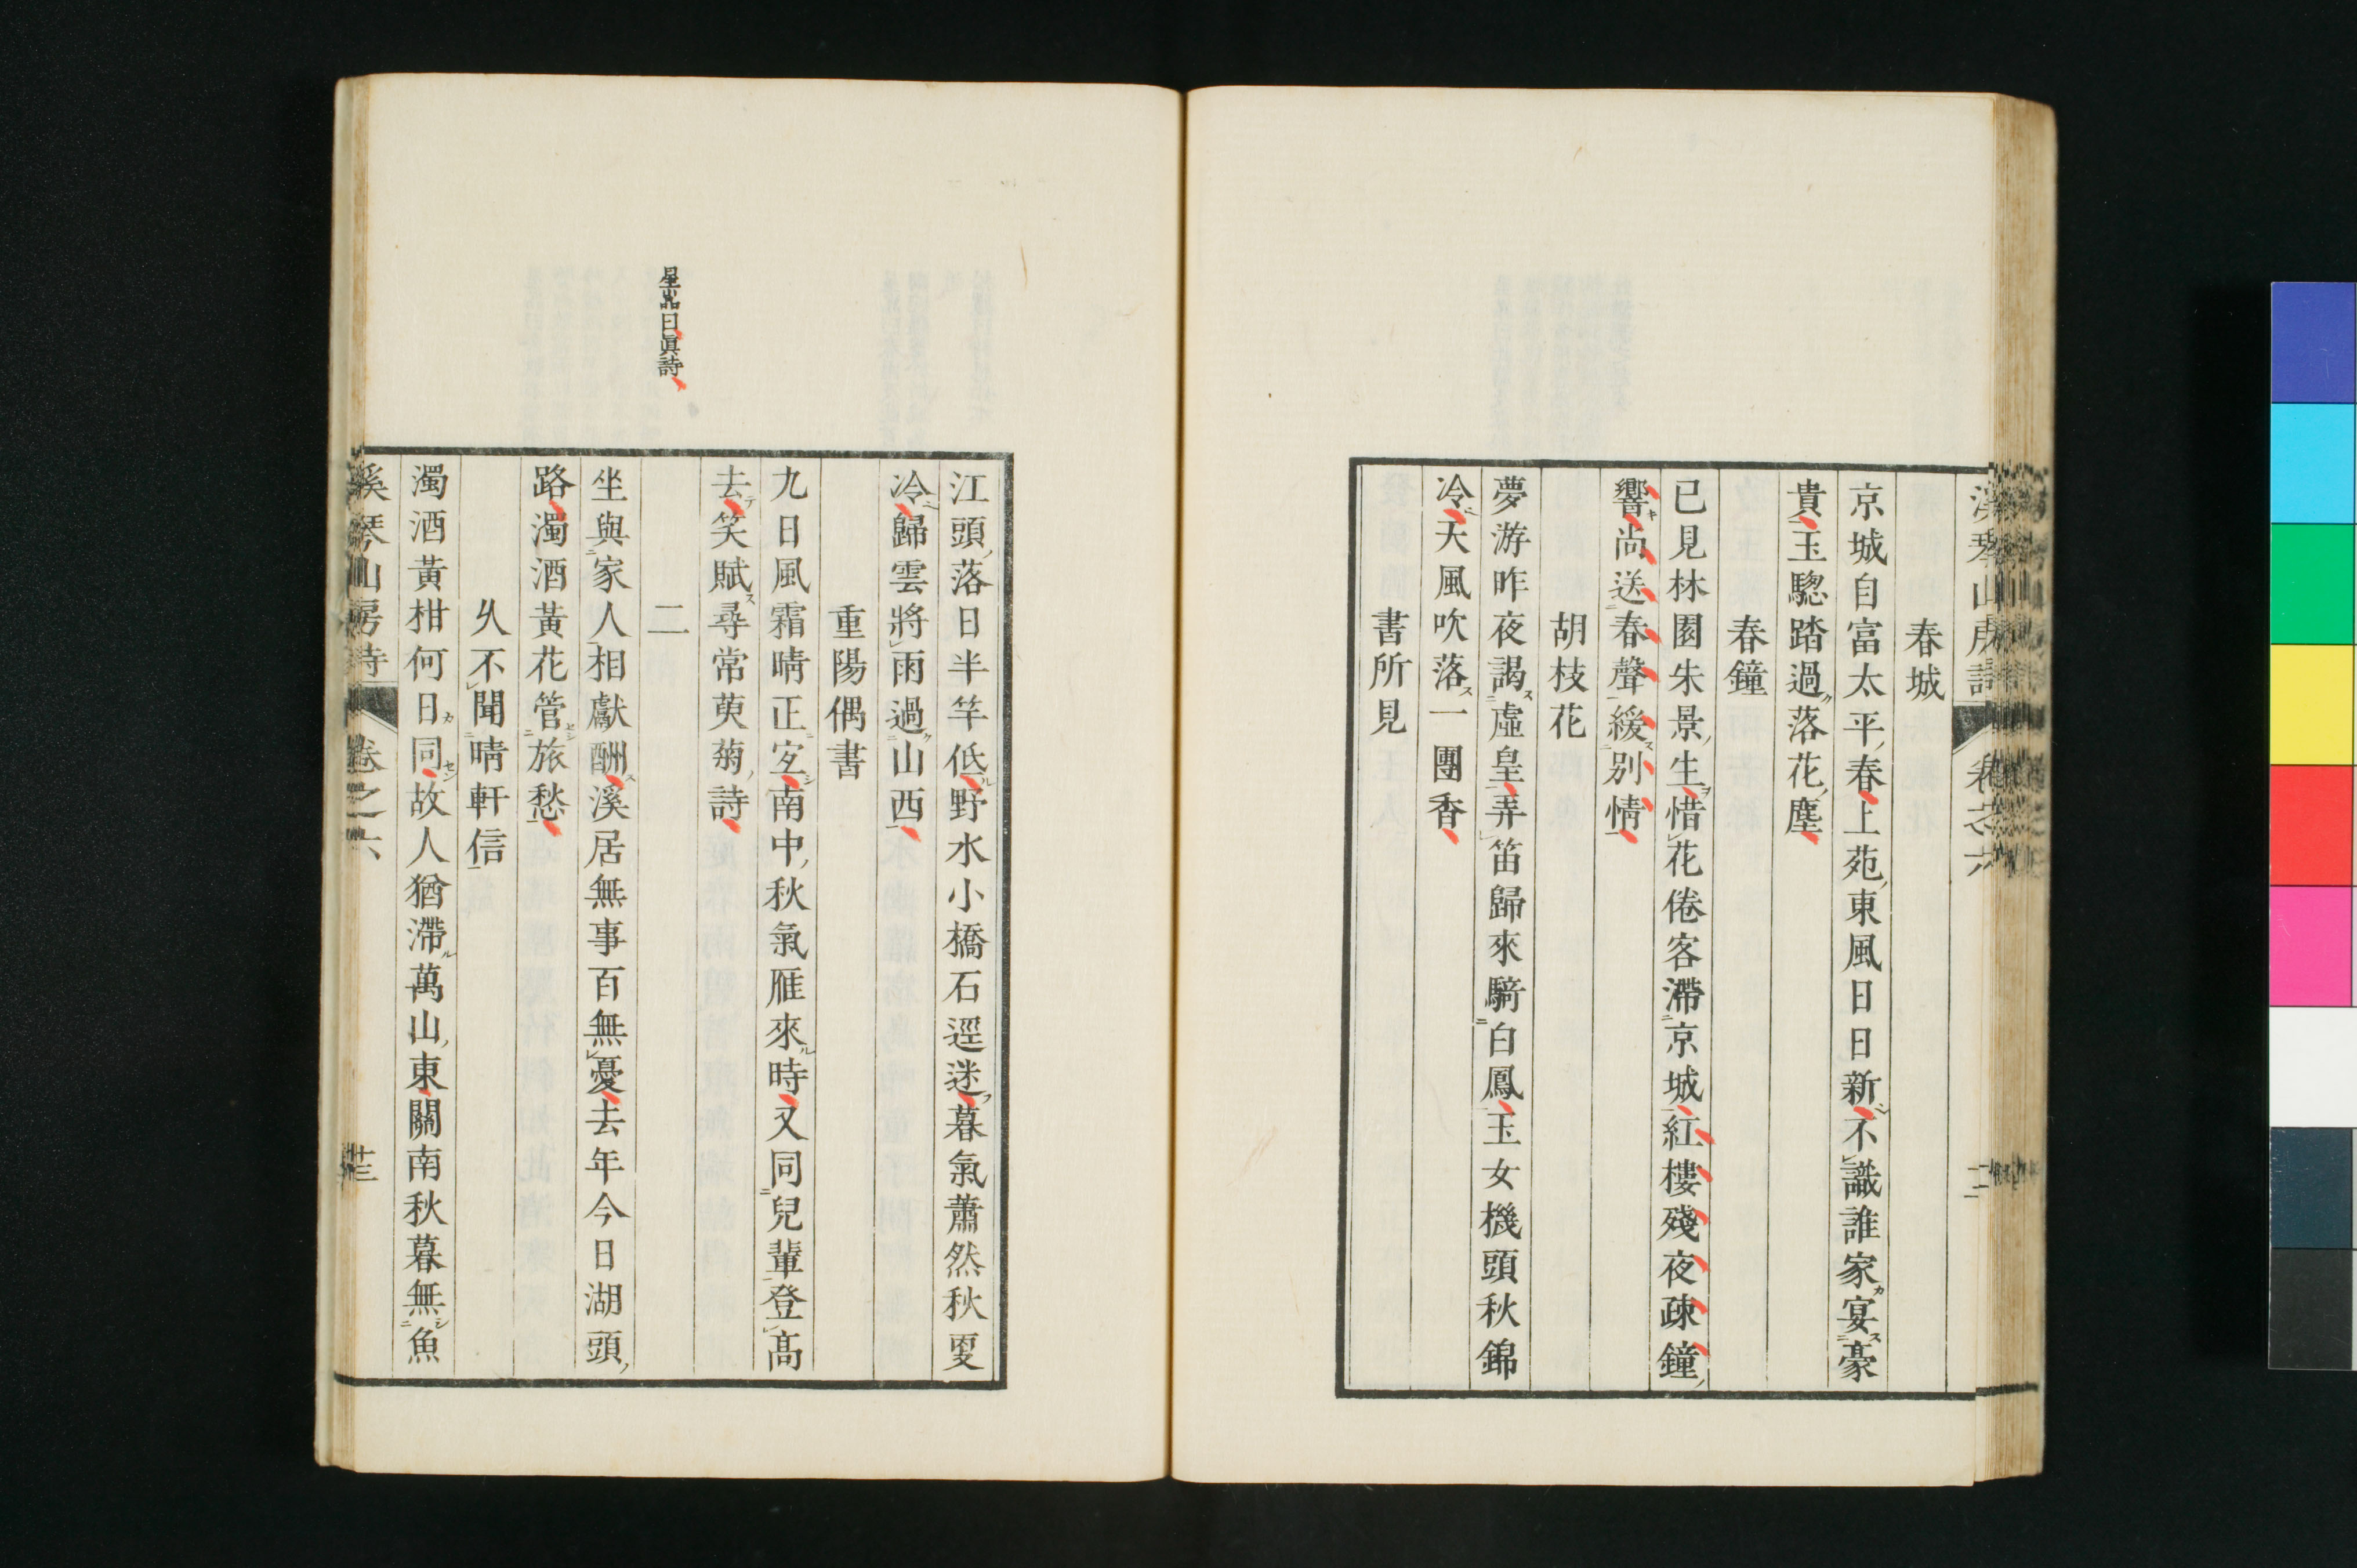 春城
京城自富太平春上苑東風日日新不識誰家宴豪
貴玉驄踏過落花塵
春鐘
已見林園朱景生惜花倦客滯京城紅樓殘夜疎鐘
響尚送春聲緩別情
胡枝花
夢游昨夜謁虛皇弄笛歸來騎白鳳玉女機頭秋錦
冷天風吹落一團香
書所見
江頭落日半竿低野水小橋石逕迷暮氣蕭然秋夏
冷歸雲將雨過山西
重陽偶書
九日風霜晴正定南中秋氣雁來時又同兒輩登高
去笑賦尋常萸菊詩
星巖曰眞詩
二
坐與家人相獻酬溪居無事百無憂去年今日湖頭
路濁酒黃花管旅愁
久不聞晴軒信
濁酒黃柑何日同故人猶滯萬山東關南秋暮無魚
溪琴山房詩 卷之六 廿三